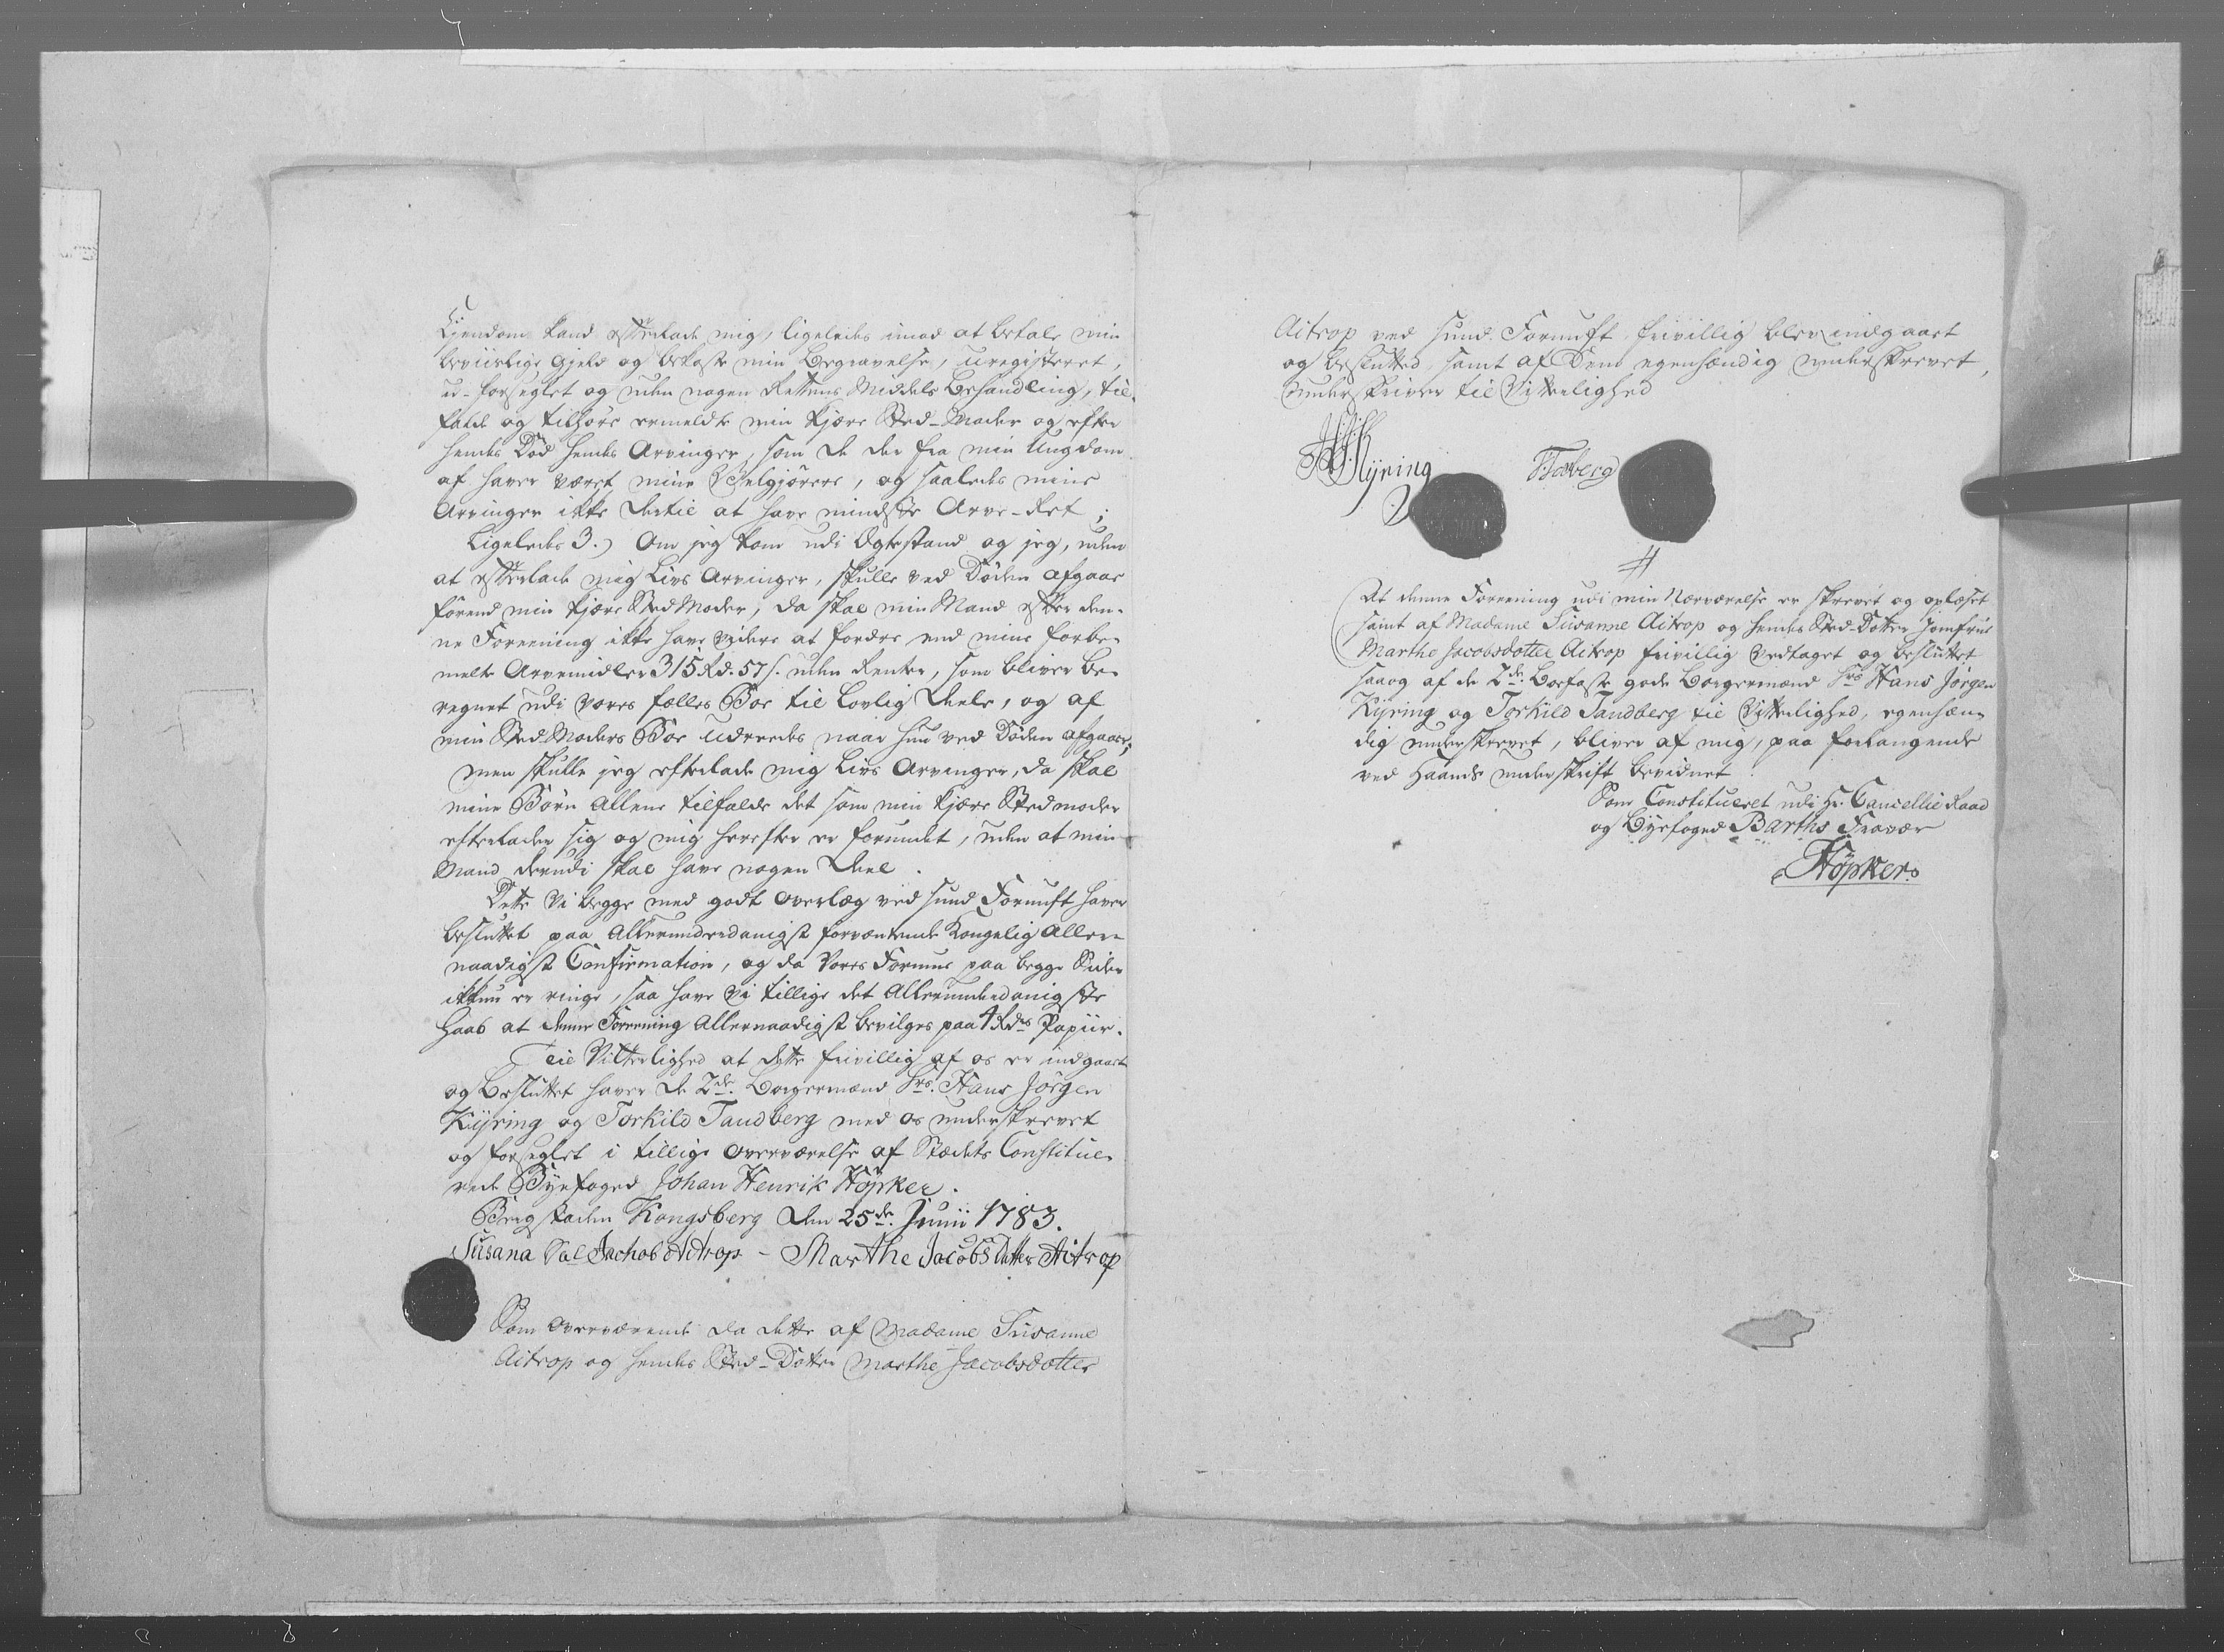 Ejendom kand efterlade mig, ligeledes imod at betale min
beviislige Gjeld og bekoste min Begravelse, uregisteret,
u-forseglet og uden nogen Rettens Middels Behandling, til-
falde og tilhøre ermeldte min kjære Sted-Moder og efter
hendes Død hendes Arvinger, som de der fra min Ungdom
af haver været mine Velgjørere, og saaledes mine
Arvinger ikke dertil at have mindste Arve-Ret;
Ligeledes 3.) Om jeg kom udi Ægtestand og jeg, uden
at efterlade mig Livs Arvinger, skulle ved Døden afgaae
førend min kjære Sted Moder, da skal min Mand efter den-
ne Foreening ikke have videre at fordre, end mine forbe-
melte Arvemidler 315 Rd. 57 s. uden Renter, som bliver be-
regnet udi vores fælles Boe til Lovlig Deele, og af
min Sted Moders Boe udreedes naar hun ved Døden afgaaer,
men skulle jeg efterlade mig Livs Arvinger, da skal
mine Børn allene tilfalde det som min kjære Stedmoder
efterlader sig og mig herefter er forundt, uden at min
Mand derudi skal have nogen Deel.
Dette Vi begge med godt Overlæg ved sund Fornuft haver
besluttet paa Allerunderdanigst forventende Kongelig Aller-
naadigst Confirmation, og da Vores Formue paa begge Sider
ikkun er ringe, saa have Vi tillige det Allerunderdanigste
Haab at denne Foreening Allernaadigst bevilges paa 4 Rdrs Papiir.
Til Vitterlighed at dette frivillig af os er indgaaet
og Besluttet haver de 2de Borgermænd Srs. Hans Jørgen
Kyring og Torkild Tandberg med os underskrevet
og forseglet i tillige Overværelse af Stædets Constitue-
rede Byefoged Johan Henrik Höpker.
Bergstaden Kongsberg den 25de Junii 1783.
Susana Sal Jachob Aitrop - Marthe Jacobs Datter Aitrop
Som Overværende da dette af Madame Susanne
Aitrop og hendes Sted-Dotter Marthe Jacobsdotter
Aitrop ved sund Fornuft frivillig blev indgaaet
og besluttet, samt af Dem egenhændig underskrevet,
underskriver til Vitterlighed
HJKyring TTandberg
At denne Foreening udi min Nærværelse er skrevet og oplæset
samt af Madame Susanne Aitrop og hendes Sted-Dotter Jomfrue
Marthe Jacobsdotter Aitrop frivillig vedtaget og besluttet
saaog af de 2de Boefaste gode Borgermænd Srs Hans Jørgen
Kyring og Torkild Tandberg til Vitterlighed, egenhæn-
dig underskrevet, bliver af mig, paa forlangende
ved Haands underskrift bevidnet.
Som Constitueret udi Hr. Cancellie Raad
og Byefoged Barths Fravær
Höpker